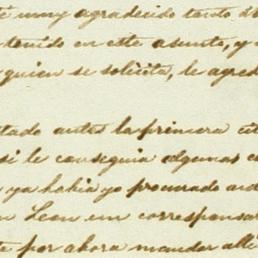 é muy agradecido tanto d
tenido en este asunto, y
quien se solicita, le agred
tado antes la primera cit
si le conseguia algunas c
ya habia yo procurado ad
n Leon un corresponsa
te por ahora mandar allí